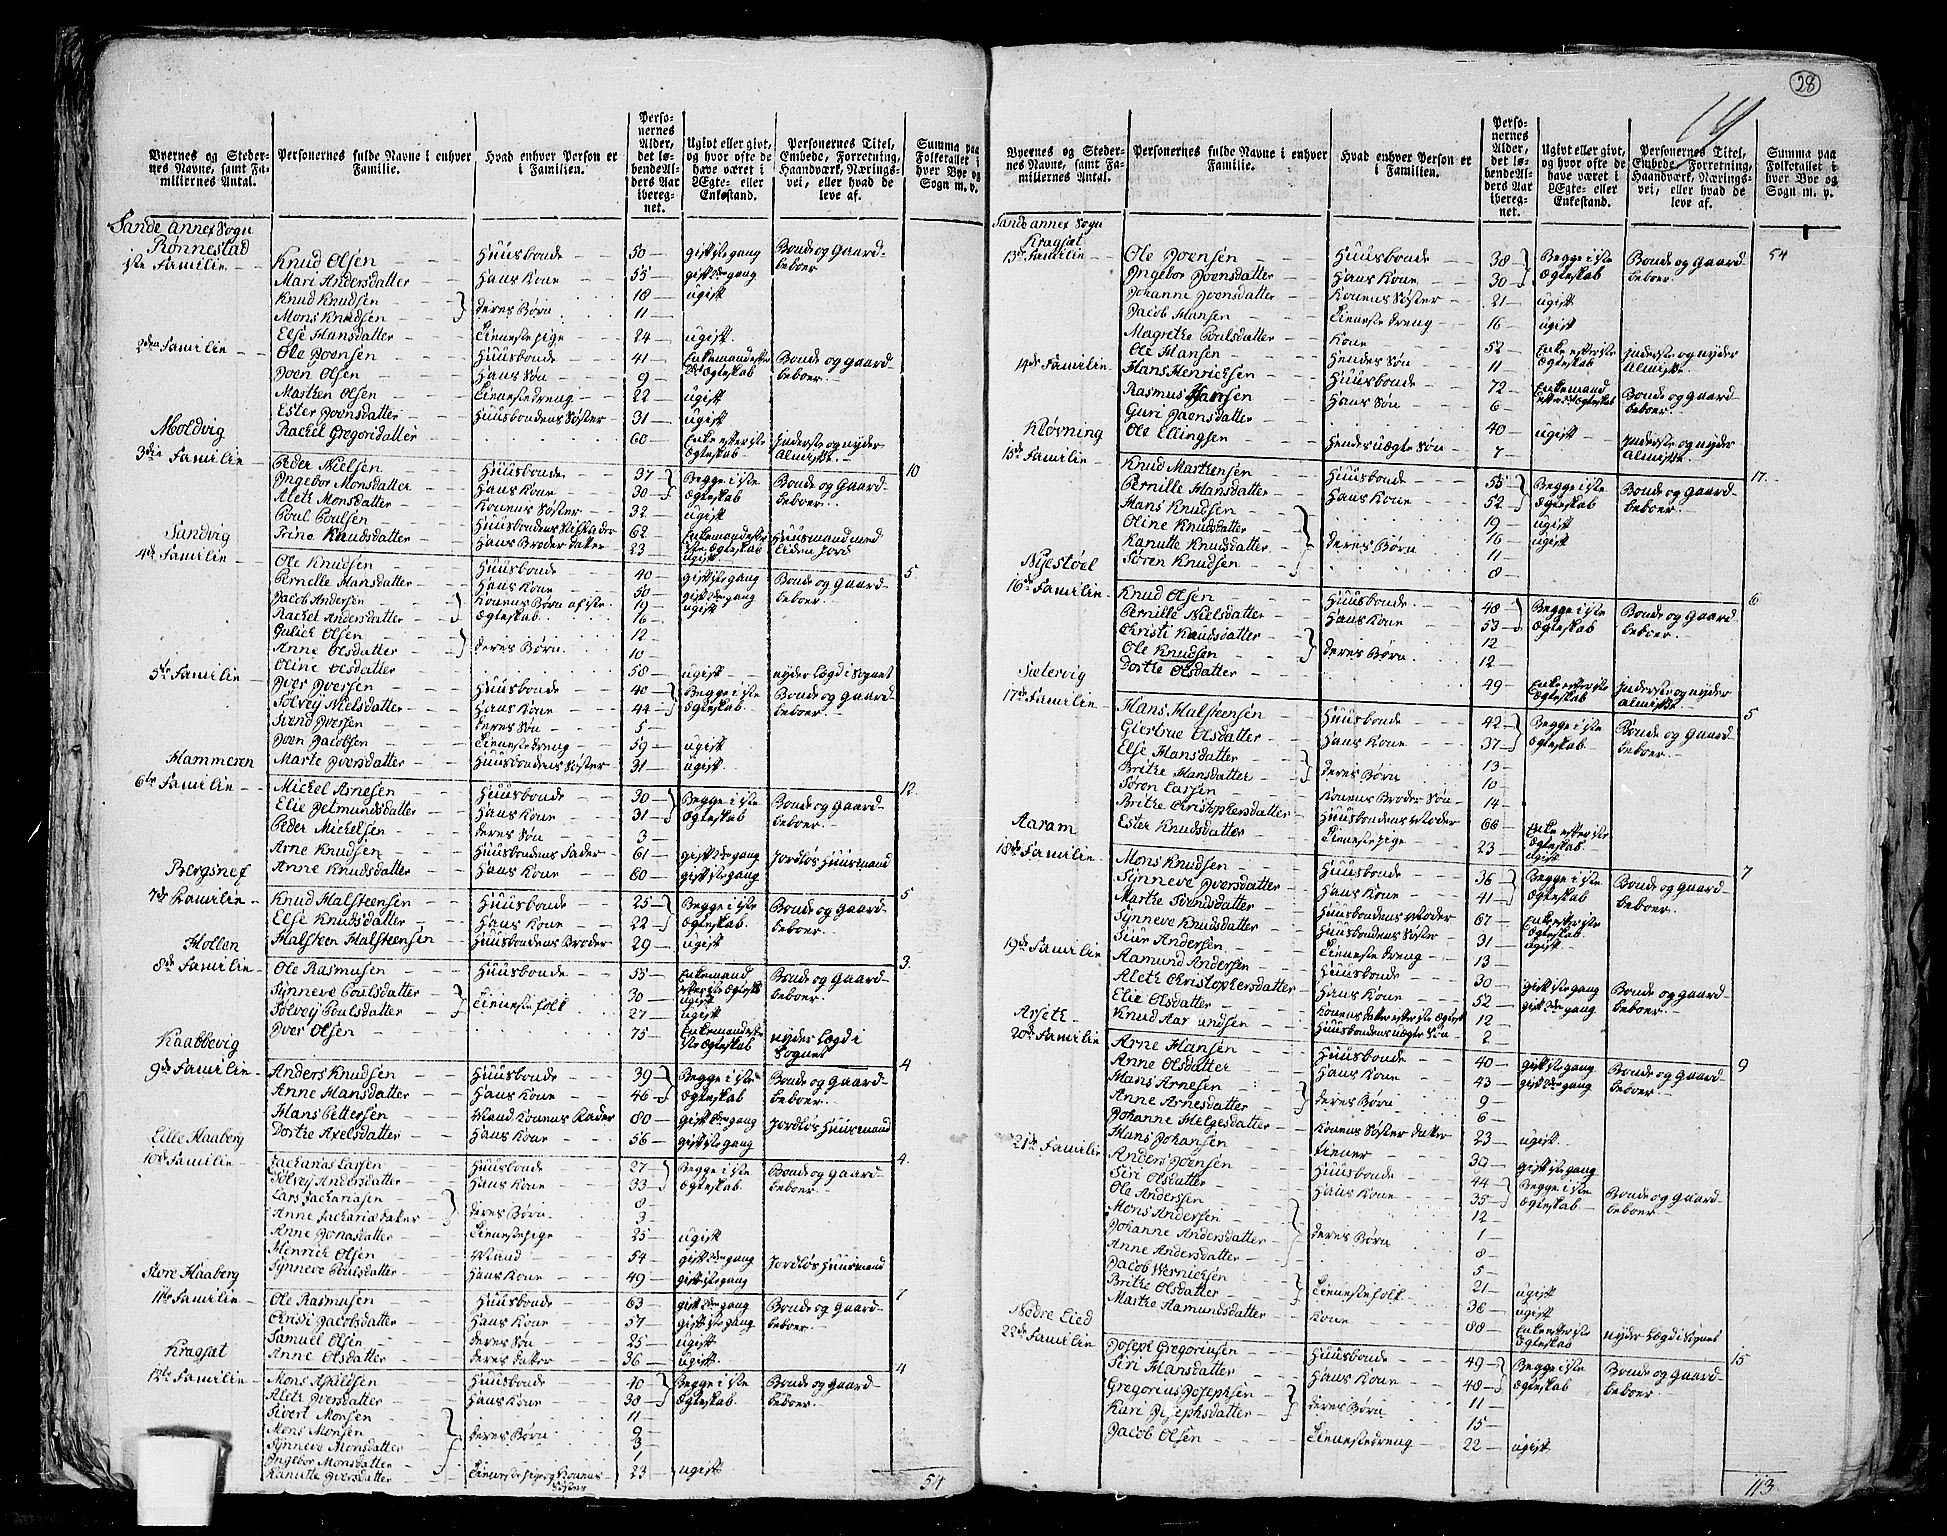 28
14
Byernes og Stedernes Navne, samt Familiernes Antal.
Personernes fulde Navne i enhver Familie.
Hvad enhver Person er i Familien.
Personernes Alder, det løbende Alders Aar iberegnet.
Ugivt eller givt, og hvor ofte de have været i Ægte- eller Enkestand.
Personernes Titel, Embede, Forretning, Haandværk, Næringsvei, eller hvad de leve af.
Summa paa Folketallet i hver Bye og Sogn m. v.
Sande annex Sogn
Rønnestad
1ste Familie Knud Olsen Huusbonde 50 gift 1ste gang Bonde og Gaardbeboer
Mari Andersdatter Hans Kone 55 gift 2de gang
Knud Knudsen } deres Børn 18 ugift
Mons Knudsen 11
Else Hansdatter Tienestepige 24 ugift
2den Familie Ole Joensen Huusbonde 41 Enkemand efter 2det Ægteskab Bonde og Gaardbeboer
Joen Olsen Hans Søn 9
Marthen Olsen Tienestedreng 22 ugift
Ester Joensdatter Huusbondens Søster 31 ugift
Rachel Gregorisdatter 60 Enke efter 1ste Ægteskab Inderste og nyder Almisse
10
Moldvig
3die Familie Peder Nielsen Huusbonde 37 } Begge i 1ste Ægteskab Bonde og Gaardbeboer
Ingebor Monsdatter Hans Kone 30
Aleth Monsdatter Konens Søster 32 ugift
Poul Poulsen Huusbondens Stiffader 62 Enkemand efter 1ste Ægteskab Huusmand med liden Jord
Trine Knudsdatter Hans Broder datter 23 ugift
5
Sandvig
4de Familie Ole Knudsen Huusbonde 40 gift 1ste gang Bonde og Gaardbeboer
Pernelle Hansdatter Hans Kone 50 gift 2de gang
Jacob Andersen } Konens Børn af 1ste Ægteskab 19 ugift
Rachel Andersdatter 16
Gulich Olsen } deres Børn 12
Anne Olsdatter 10
Oline Olsdatter 58 ugift nyder Lægd i Sognet
5te Familie Iver Iversen Huusbonde 40 } Begge i 1ste Ægteskab Bonde og Gaardbeboer
Sølvey Nielsdatter Hans Kone 44
Svend Iversen deres Søn 5
Joen Jacobsen Tienestedreng 59 ugift
Marte Iversdatter Huusbondens Søster 31 ugift
12
Hammeren
6te Familie Michel Arnesen Huusbonde 30 } Begge i 1ste Ægteskab Bonde og Gaardbeboer
Elie Jetmundsdatter Hans Kone 31
Peder Michelsen deres Søn 3
Arne Knudsen Huusbondens Fader 61 gift 2de gang Jordløs Huusmand
Anne Knudsdatter Hans Kone 60 gift 1ste gang
5
Bergsnef
7de Familie Knud Halsteensen Huusbonde 25 } Begge i 1ste Ægteskab Bonde og Gaardbeboer
Else Knudsdatter Hans Kone 22
Halsteen Halsteensen Huusbondens Broder 29 ugift
3
Hollen
8de Familie Ole Rasmusen Huusbonde 55 Enkemand efter 1ste Ægtesk Bonde og Gaardbeboer
Synneve Poulsdatter } Tienestefolk 30 ugift
Sølvey Poulsdatter 27 ugift
Iver Olsen 75 Enkemand efter 1ste Ægteskab nyder Lægd i Sognet
4
Kaabbevig
9de Familie Anders Knudsen Huusbonde 39 } Begge i 1ste Ægteskab Bonde og Gaardbeboer
Anne Hansdatter Hans Kone 46
Hans Pettersen Mand Konens Fader 80 gift 2de gang Jordløs Huusmand
Dorthe Axelsdatter Hans Kone 56 gift 1ste gang
4
Lille Haaberg
10de Familie Zacharias Larsen Huusbonde 27 } Begge i 1ste Ægteskab Bonde og Gaardbeboer
Sølvey Andersdatter Hans Kone 33
Lars Zachariasen } deres Børn 8
Anne Zachariæ datter 3
Anne Jonasdatter Tienestepige 25 ugift
Henrich Olsen Mand 54 gift 2de gang Jordløs Huusmand
Synneve Poulsdatter Hans Kone 49 gift 1ste gang
7
Store Haaberg
11te Familie Ole Rasmusen Huusbonde 63 gift 2de gang Bonde og Gaardbeboer
Christi Jacobsdatter Hans Kone 57 gift 1ste gang
Samuel Olsen deres Søn 25 ugift
Anne Olsdatter deres datter 36 ugift
4
Kragset
12te Familie Mons Huusbonde 40 } Begge i 1ste Ægteskab Bonde og Gaardbeboer
Aleth Iversdatter Hans Kone 38
Sivert Monsen } deres Børn 11
Mons Monsen 9
Synneve Monsdatter 3
Ingebor Monsdatter 1
Kanutte Iversdatter Tienestepige og Konens Søster 23 ugift
54
Byernes og Stedernes Navne, samt Familiernes Antal.
Personernes fulde Navne i enhver Familie.
Hvad enhver Person er i Familien.
Personernes Alder, det løbende Alders Aar iberegnet.
Ugivt eller givt, og hvor ofte de have været i Ægte- eller Enkestand.
Personernes Titel, Embede, Forretning, Haandværk, Næringsvei, eller hvad de leve af.
Summa paa Folketallet i hver Bye og Sogn m. v.
Sande annex Sogn
Kragset
54
13de Familie Ole Joensen Huusbonde 38 } Begge i 1ste Ægteskab Bonde og Gaardbeboer
Ingebor Joensdatter Hans Kone 30
Johanne Joensdatter Konens Søster 21 ugift
Jacob Hansen Tienestedreng 16 ugift
Magrethe Poulsdatter Kone 52 Enke efter 1ste Ægteskab Inderste og nyder Almisse
Ole Hansen Hendes Søn 11
14de Familie Hans Henrichsen Huusbonde 72 Enkemand efter Ægteskab Bonde og Gaardbeboer
Rasmus Hansen Hans Søn 6
Guri Joensdatter 40 ugift Inderste og nyder Almisse
Ole Ellingsen Hendes uægte Søn 7
17
Kløvning
15de Familie Knud Marthensen Huusbonde 55 } Begge i 1ste Ægteskab Bonde og Gaardbeboer
Pernille Hansdatter Hans Kone 52
Hans Knudsen } deres Børn 19 ugift
Oline Knudsdatter 16 ugift
Kanutte Knudsdatter 11
Søren Knudsen 8
6
Nyestøel
16de Familie Knud Olsen Huusbonde 48 } Begge i 1ste Ægteskab Bonde og Gaardbeboer
Pernille Nielsdatter Hans Kone 53
Christi Knudsdatter } deres Børn 12
Ole Knudsen 12
Dorthe Olsdatter 49 Enke efter 1ste Ægteskab Inderste og nyder Almisse
5
Sætervig
17de Familie Hans Halsteensen Huusbonde 42 } Begge i 1ste Ægteskab Bonde og Gaardbeboer
Giertrue Olsdatter Hans Kone 37
Else Hansdatter } deres Børn 13
Brithe Hansdatter 10
Søren Larsen Konens Broder Søn 14
Brithe Christophersdatter Huusbondens Moder 66 Enke efter 1ste Ægteskab
Ester Knudsdatter Tienestepige 23 ugift
7
Aaram
18de Familie Mons Knudsen Huusbonde 36 } Begge i 1ste Ægteskab Bonde og Gaardbeboer
Synneve Iversdatter Hans Kone 41
Marthe Svendsdatter Huusbondens Moder 67 Enke efter 1ste Ægteskab
Synneve Knudsdatter Huusbondens Søster 31 ugift
Siur Andersen Tienestedreng 13
19de Familie Aamund Andersen Huusbonde 30 gift 1ste gang Bonde og Gaardbeboer
Aleth Christophersdatter Hans Kone 52 gift 2de gang
Elie Olsdatter Konens datter efter 1ste Ægtesk 12
Knud Aamundsen Huusbondens uægte Søn 2
9
Arseth
20de Familie Arne Hansen Huusbonde 40 gift 1ste gang Bonde og Gaardbeboer
Anne Olsdatter Hans Kone 43 gift 2de gang
Hans Arnesen } deres Børn 9
Anne Arnesdatter 6
Johanne Helgesdatter Konens Søster datter 23 ugift
Hans Johansen tiener 30 gift 1ste gang
21de Familie Anders Joensen Huusbonde 44 } Begge i 1ste Ægteskab Bonde og Gaardbeboer
Siri Olsdatter Hans Kone 35
Ole Anderssen } deres Børn 12
Mons Andersen 1
Johanne Andersdatter 8
Anne Andersdatter 5
Jacob Wernichsen } Tienestefolk 21 ugift
Brithe Olsdatter 36 ugift
Marthe Aamundsdatter Kone 88 Enke efter 1ste Ægteskab nyder Lægd i Sognet
15
Nedre Lied
22de Familie Joseph Gregoriusen Huusbonde 49 } Begge i 1ste Ægteskab Bonde og Gaardbeboer
Siri Hansdatter Hans Kone 48
Gregorius Josephsen } deres Børn 11
Kari Josephsdatter 15
Jacob Olsen Tienestedreng 22 ugift
113